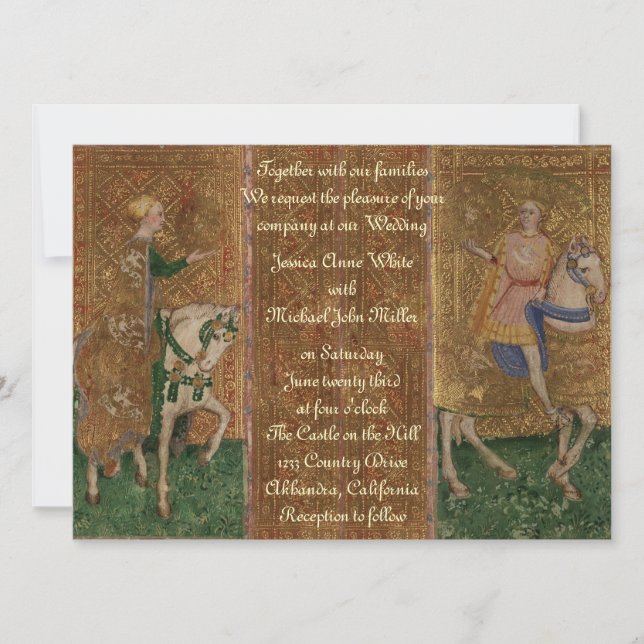 Together with our families
We request the pleasure of your
company at our Wedding
Jessica Anne White
with
Michael John Miller
on Saturday
June twenty third
at four o'clock
The Castle on the Hill
1233 Country Drive
Akhandra, California
Reception to follow